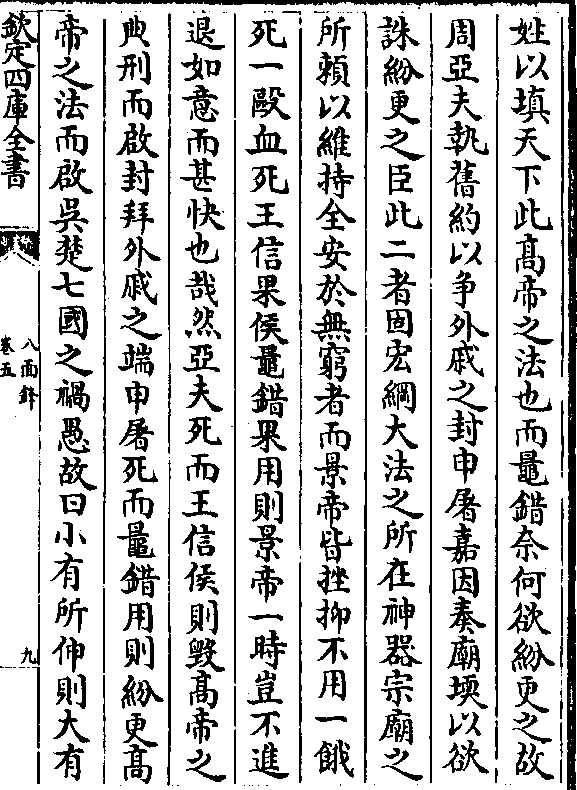 姓以填天下此髙帝之法也而鼂錯奈何欲紛更之故
周亞夫執舊約以争外戚之封申屠嘉因奏廟堧以欲
誅紛更之臣此二者固宏綱大法之所在神器宗廟之
所頼以維持全安於無窮者而景帝皆挫抑不用一餓
死一毆血死王信果侯鼂錯果用則景帝一時豈不進
退如意而甚快也哉然亞夫死而王信侯則毁髙帝之
典刑而啟封拜外戚之端申屠死而鼂錯用則紛更髙
帝之法而啟吳楚七國之禍愚故曰小有所伸則大有
欽定四庫全書
八面鋒
卷五
九